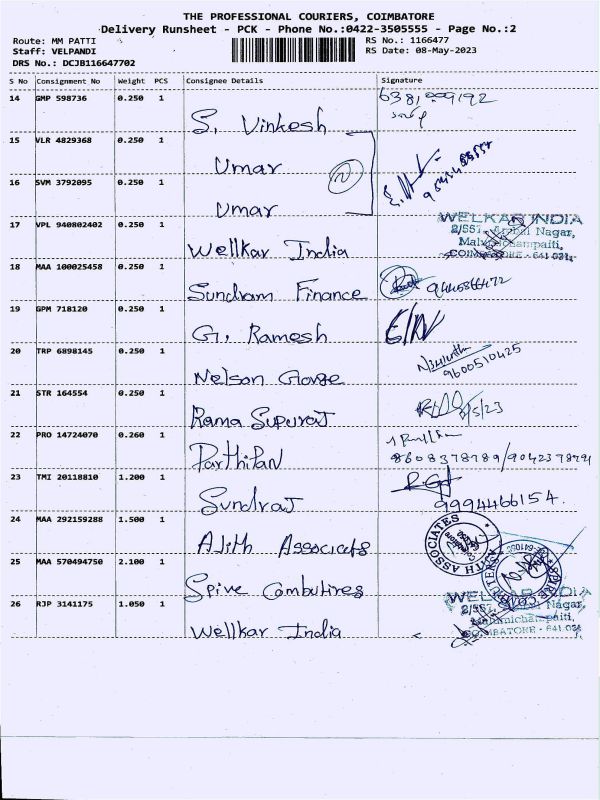 THE PROFESSIONAL COURIERS, COIMBATORE
Delivery Runsheet - PCK - Phone No.:0422-3505555 - Page No.:2
Route: MM PATTI
RS No.: 1166477
Staff: VELPANDI
RS Date: 08-May-2023
DRS No.: DCJB116647702
S No Consignment No Weight PCS Consignee Details Signature
14 GMP 598736 0.250 1 S. Vinkesh
15 VLR 4829368 0.250 1 Umar
16 SVM 3792095 0.250 1 Umar
17 VPL 940802402 0.250 1 Wellkar India
WELKAR INDIA
Nagar,
COIMBATORE - 641 021.
18 MAA 100025458 0.250 1 Sundram Finance 9445866472
19 GPM 718120 0.250 1 G. Ramesh
20 TRP 6898145 0.250 1 Nelson George 9600510425
21 STR 164554 0.250 1 Rama Supuraj
22 PRO 14724070 0.260 1 Parthipan
23 TMI 20118810 1.200 1 Sundraj 9994466154.
24 MAA 292159288 1.500 1 Ajith Associats
ASSOCIATES
25 MAA 570494750 2.100 1 Spive Combutires
26 RJP 3141175 1.050 1 Wellkar India
Nagar,
COIMBATORE - 641 021